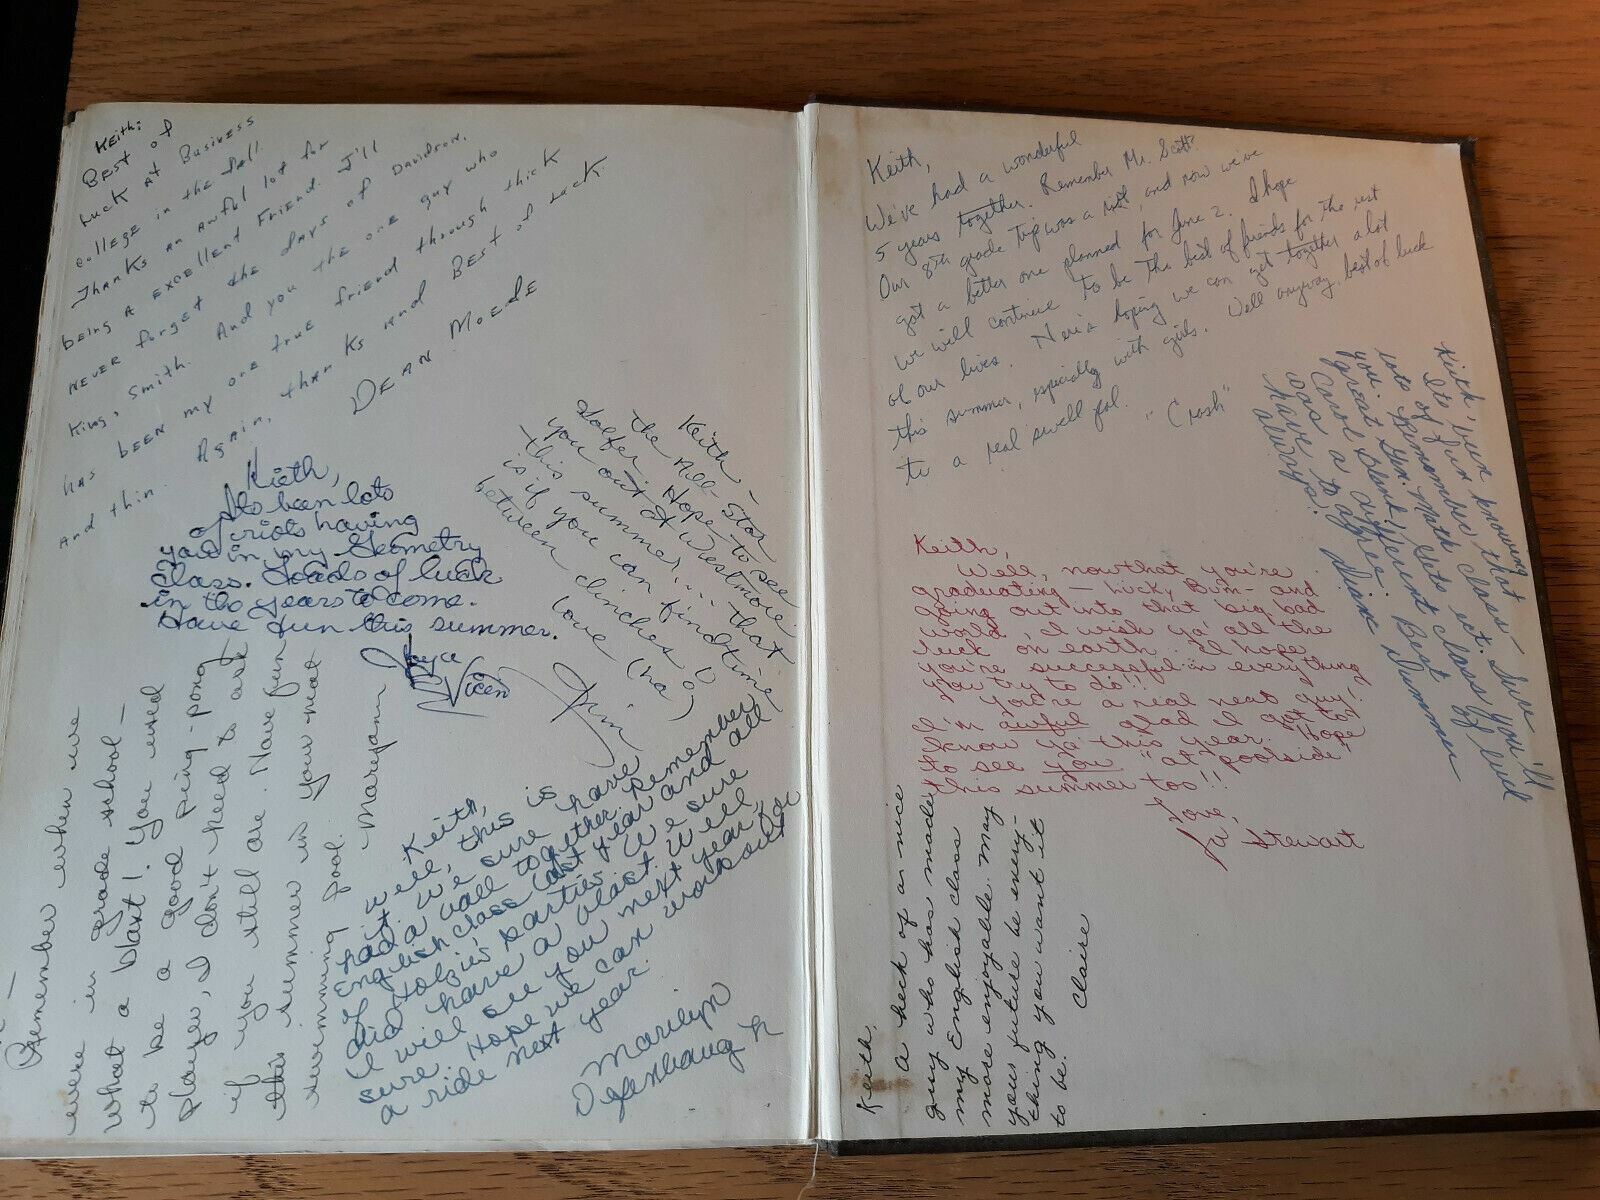 Keith:
Best of
Luck at Business
college in the fall.
Thanks an awful lot for
being a excellent friend. I'll
never forget the days of Davidson,
King, Smith. And you the one guy who
has been my one true friend through thick
and thin. Again, thanks and Best of Luck.
Dean Moede
Kieth,
Its been lots
of riots having
you in my Geometry
Class. Loads of luck
in the years to come.
Have fun this summer.
Joyce
Keith -
the All-Star
Golfer. Hope to see
you out at Westmoor
this summer.... that
is if you can find time
between clinches!
Love (ha)
Jim
Remember when we
were in grade school -
what a blast! You used
to be a good ping-pong
player, I don't need to ask
if you still are. Have fun
this summer in your neat
swimming pool.
- Maryann
Keith,
Well, this is
it. We sure have
had a ball together. Remember
English class last year and all
of Holzie's parties. We sure
did have a blast. Well
I will see you next year for
sure. Hope we can work out
a ride next year.
Marilyn
Defenbaugh
Keith,
We've had a wonderful
5 years together. Remember Mr. Scott?
Our 8th grade trip was a riot, and now we've
got a better one planned for June 2. I hope
we will continue to be the best of friends for the rest
of our lives. Here's hoping we can get together a lot
this summer, especially with girls. Well anyway, best of luck
to a real swell pal. "Crash"
Kieth,
Its been knowing
lots of fun that
you in Economics class - Sure
great gym. Math class. You'll
Carol Blank, lets ect. class of lued
was a different Best
have to agree!
always!
Diane
Keith,
Well, now that you're
graduating - Lucky Bum - and
going out into that big bad
world, I wish ya' all the
luck on earth. I hope
you're successful in everything
you try to do!!
You're a real neat guy!
I'm awful glad I got to
know ya this year. Hope
to see you "at poolside"
this summer too!!
Love,
Jo Stewart
Keith,
A heck of a nice
guy who has made
my English class
more enjoyable. May
your future be every-
thing you want it
to be.
Claire